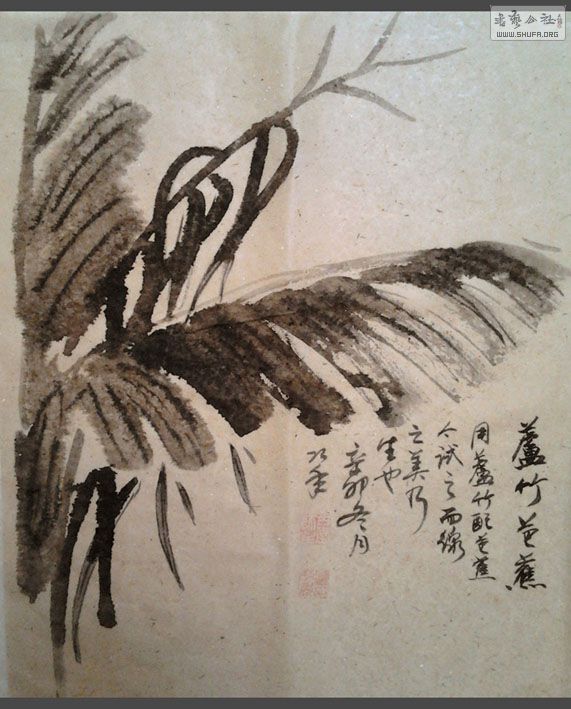 蘆竹芭蕉
用蘆竹配芭蕉
今试之而线
之美乃
生也
辛卯冬月
書藝公社
WWW.SHUFA.ORG